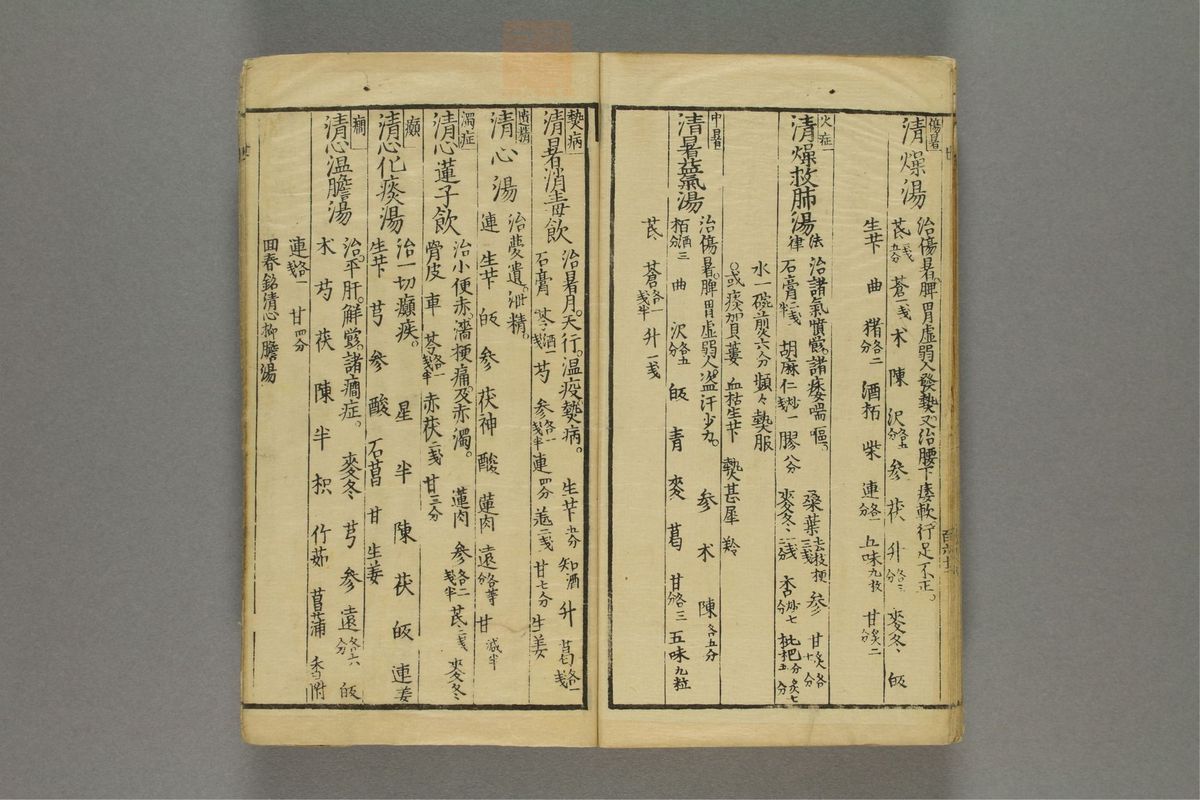 傷暑
清燥湯
治傷暑。脾胃虚弱人發熱。又治腰下痿軟行足不正。
芪 蒼一戔 术 陳 沢各五分 參 茯 升各二分 麥冬 皈
生芐 曲 猪各二分 酒栢 柴 連各一分 五味九枚 甘炙二分
火症
清燥救肺湯
法律
治諸氣憤鬱。諸痿喘嘔。 桑葉去枝梗三戔 參 甘炙各十分
石膏二戔半 胡麻仁炒一戔 膠八分 麥冬二戔 杏炒七分 枇把炙七分
水一碗煎六分頻々熱服
○或痰貝蔞 血枯生芐 熱甚犀 羚
中暑
清暑益氣湯
治傷暑。脾胃虚弱人。盗汗少氣。 參 术 陳各五分
栢酒三分 曲 沢各五分 皈 青 麥 葛 甘各三分 五味九粒
芪 蒼各一戔半 升一戔
熱病
清暑消毒飲
治暑月。天行。温疫。熱病。 生芐五分 知酒 升 葛各一戔
石膏 芩酒一戔 芍 參各一戔半 連四分 羗二戔 甘七分 生姜
清心湯
治夢遺。泄精。
連 生芐 皈 參 茯神 酸 蓮肉 遠各等分 甘減半
濁症
清心蓮子飲
治小便赤。濇梗痛。及赤濁。 蓮肉 參各二戔半 芪二戔 麥冬
骨皮 車 芩各一戔半 赤茯二戔 甘三分
癲
清心化痰湯
治一切癲疾。 星 半 陳 茯 皈 連 姜
生芐 芎 參 酸 石菖 甘 生姜
癇
清心温膽湯
治。平肝。解鬱。諸癇症。 麥冬 芎 參 遠各六分 皈
术 芍 茯 陳 半 枳 竹茹 菖蒲 香附
連各一戔 甘四分
回春銘清心抑膽湯